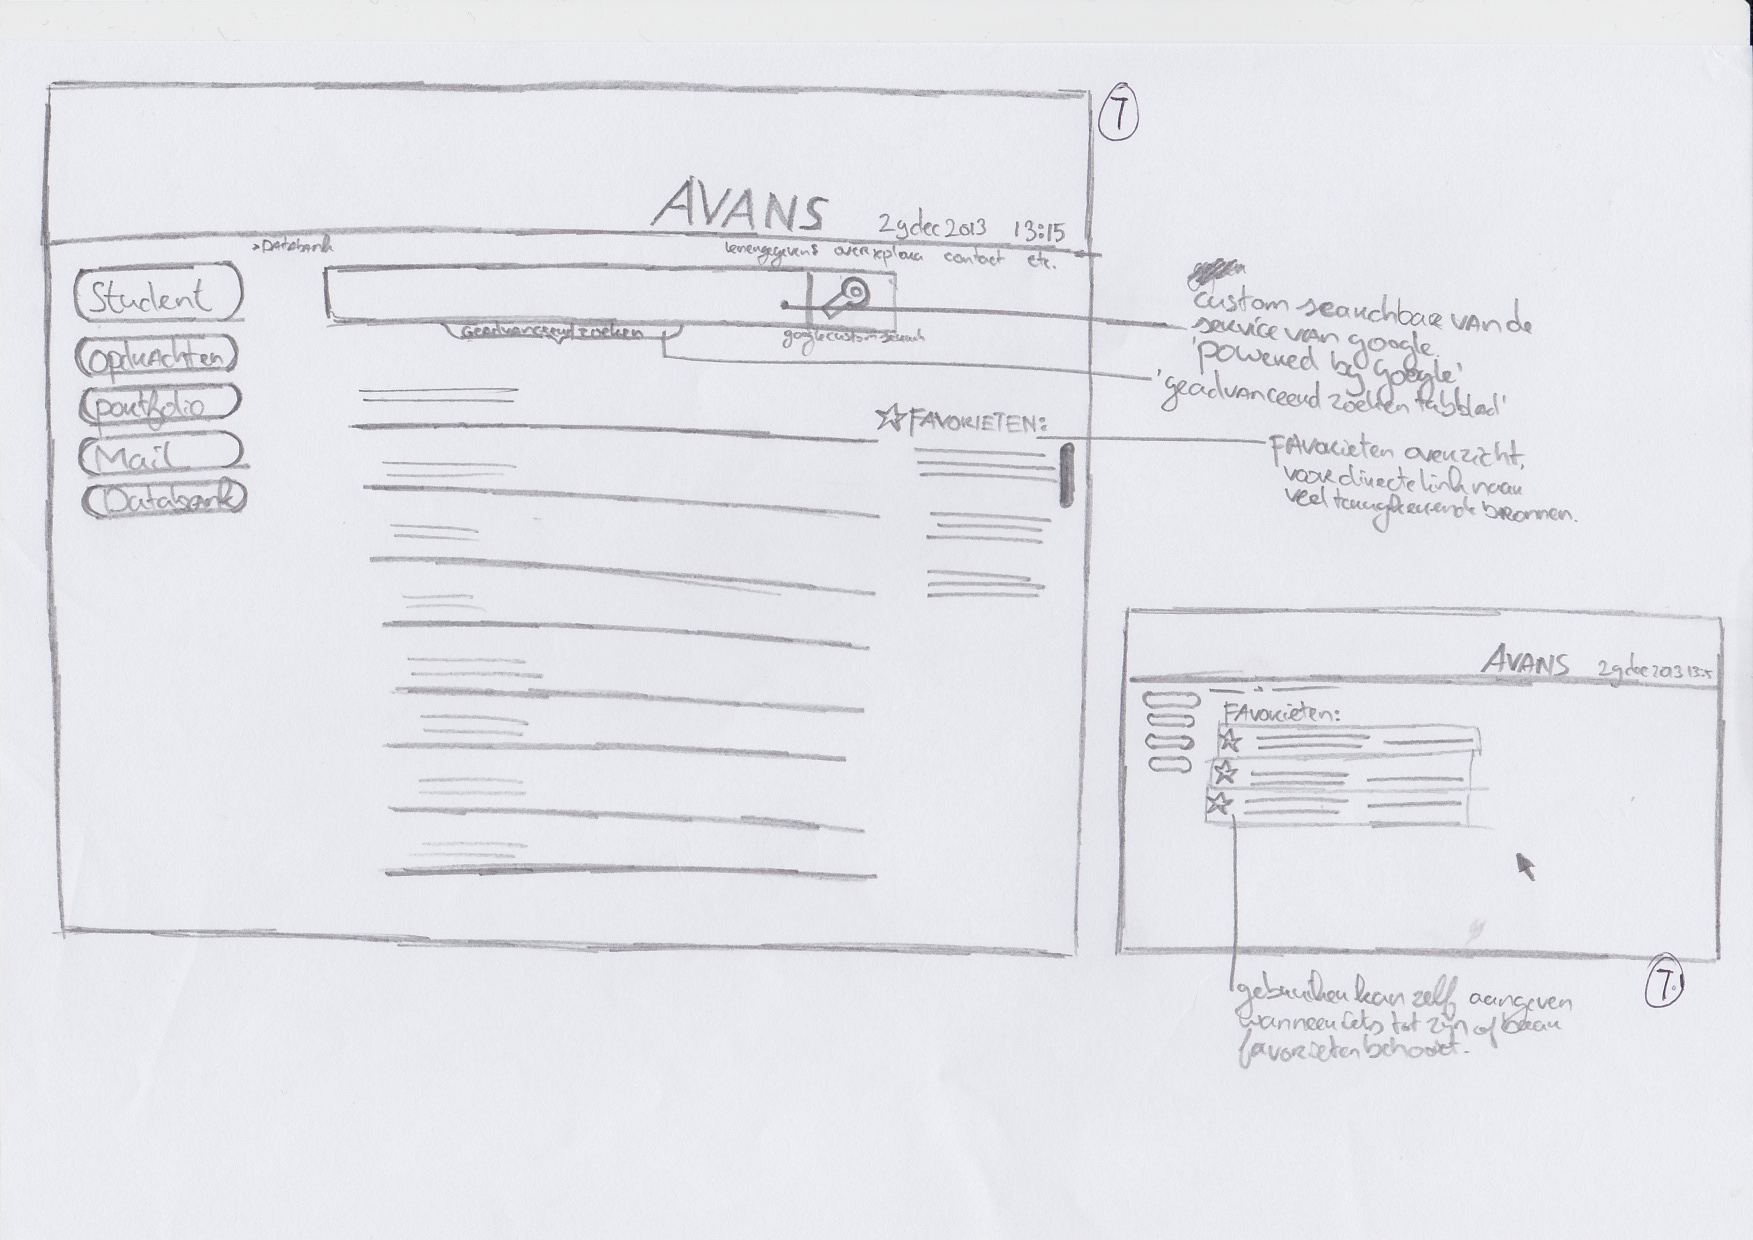 7
AVANS
29 dec 2013 13:15
>Databank
contact etc.
Student
opdrachten
portfolio
Mail
Databank
Geadvanceerd zoeken
google custom search
custom searchbar van de
service van google.
'powered by google'
'geadvanceerd zoeken tabblad'
FAVORIETEN:
FAvorieten overzicht,
voor directe link naar
veel terugkerende bronnen.
AVANS 29 dec 2013 13:15
FAvorieten:
7.
gebruiker kan zelf aangeven
wanneer iets tot zijn of haar
favorieten behoort.